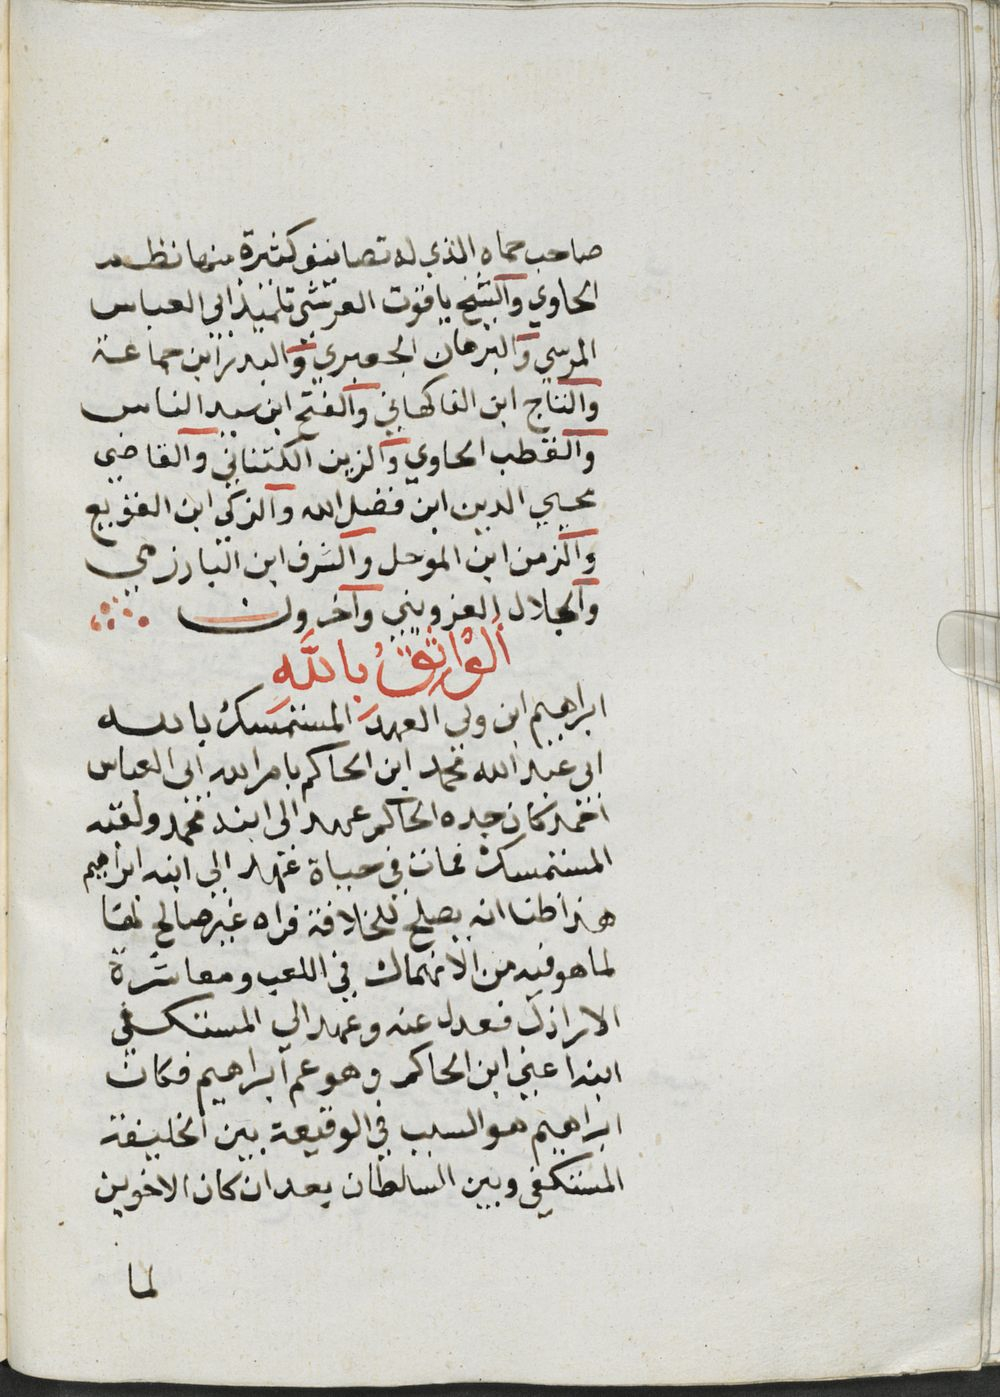 صاحب حماه الذي له تصانيف كثيرة منها نظم
الحاوي والشيخ ياقوت العرشي تلميذ ابي العباس
المرسي والبرهان الجعبري والبدر ابن جماعة
والتاج ابن الفاكهاني والفتح ابن سيد الناس
والقطب الحاوي والزين الكتناني والقاضي
محيي الدين ابن فضل الله والزكي ابن القوبع
والزمن ابن المرحل والشرف ابن البارزي
والجلال القزويني وآخرون
الواثق بالله
ابراهيم ابن ولي العهد المستمسك بالله
ابي عبد الله محمد ابن الحاكم بامر الله ابي العباس
احمد كان جده الحاكم عهد الى ابنه محمد ولقبه
المستمسك فمات في حياة عهد الى ابنه ابراهيم
هذا ظنا انه يصلح للخلافة فراه غير صالح لها
لما هو فيه من الانهماك في اللعب ومعاشرة
الاراذل فعدل عنه وعهد الى المستكفي
ابنه اعني ابن الحاكم وهو عم ابراهيم فكان
ابراهيم هو السبب في الوقيعة بين الخليفة
المستكفي وبين السلطان بعد ان كان الاخوين
لما